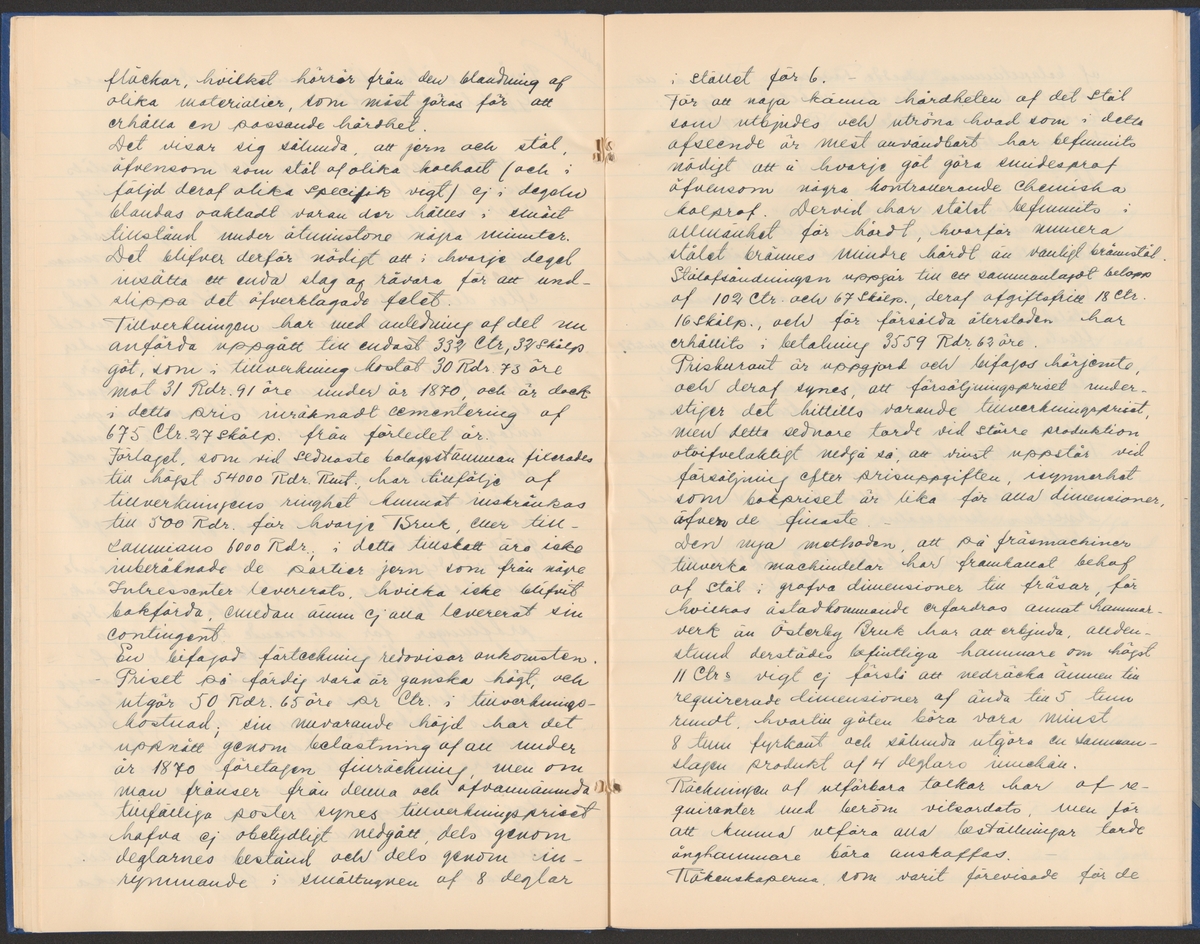 fläckar, hvilket härrör från den blandning af
olika materialier, som måst göras för att
erhålla en passande hårdhet.
Det visar sig sålunda, att jern och stål,
äfvensom som stål af olika kolhalt (och i
följd deraf olika specifik vigt) ej i degeln
blandas oaktadt varan der hålles i smält
tillstånd under åtminstone några minuter.
Det blifver derför nödigt att i hvarje degel
insätta ett enda slag af råvara för att und-
slippa det öfverklagade felet.
Tillverkningen har med anledning af det nu
anförda uppgått till endast 332 Ctr, 32 Skålp
göt, som i tillverkning kostat 30 Rdr. 73 öre
mot 31 Rdr. 91 öre under år 1870, och är dock
i detta pris inräknadt cementering af
675 Ctr. 27 Skålp. från förledet år.
Förlaget, som vid sednaste bolagsstämman fixerades
till högst 54000 Rdr. Rmt, har tillfölje af
tillverkningens ringhet kunnat inskränkas
till 500 Rdr. för hvarje Bruk, eller till-
sammans 6000 Rdr., i detta tillskott äro icke
inberäknade de partier jern som från några
Intressenter levererats, hvilka icke blifvit
bokförda emedan ännu ej alla levererat sin
contingent.
En bifogad förteckning redovisar ankomsten.
- Priset på färdig vara är ganska högt, och
utgör 50 Rdr. 65 öre pr Ctr. i tillverknings-
kostnad; sin nuvarande höjd har det
uppnått genom belastning af all under
år 1870 företagen inräckning, men om
man frånser från denna och ofvannämnda
tillfälliga poster synes tillverkningspriset
hafva ej obetydligt nedgått, dels genom
deglarnes bestånd och dels genom in-
rymmande i smältugnen af 8 deglar
i stället för 6. -
För att noga känna hårdheten af det stål
som utbjudes och utröna hvad som i detta
afseende är mest användbart har befunnits
nödigt att å hvarje göt göra smidesprof
äfvensom några kontrollerande chemiska
kolprof. Dervid har stålet befunnits i
allmänhet för hårdt, hvarför numera
stålet brännes mindre hårdt än vanligt brännstål.
Stålafsändningen uppgår till ett sammanlagdt belopp
af 102 Ctr. och 67 Skålp., deraf afgiftsfritt 18 Ctr.
16 Skålp., och för försålda återstoden har
erhållits i betalning 3559 Rdr 62 öre.
Priskurant är uppgjord och bifogas härjemte,
och deraf synes, att försäljningspriset under-
stiger det hittills varande tillverkningspriset,
men detta sednare torde vid större produktion
otvifvelaktigt nedgå så, att vinst uppstår vid
försäljning efter prisuppgiften, isynnerhet
som kolpriset är lika för alla dimensioner,
äfven de finaste. -
Den nya methoden, att på fräsmachiner
tillverka machindelar har framkallat behof
af stål i grofva dimensioner till fräsar, för
hvilkas åstadkommande erfordras annat hammar-
verk än Österby Bruk har att erbjuda, alden-
stund derstädes befintliga hammare om högst
11 Ctrs vigt ej förslå att nedräcka ämnen till
requirerade dimensioner af ända till 5 tum
rundt, hvartill göten böra vara minst
8 tum fyrkant och sålunda utgöra en samman-
slagen produkt af 4 deglars innehåll.
Räckningen af utförbara tolkar har af re-
quiranter med beröm vitsordats, men för
att kunna utföra alla beställningar torde
ånghammare böra anskaffas. -
Räkenskaperna, som varit förevisade för de